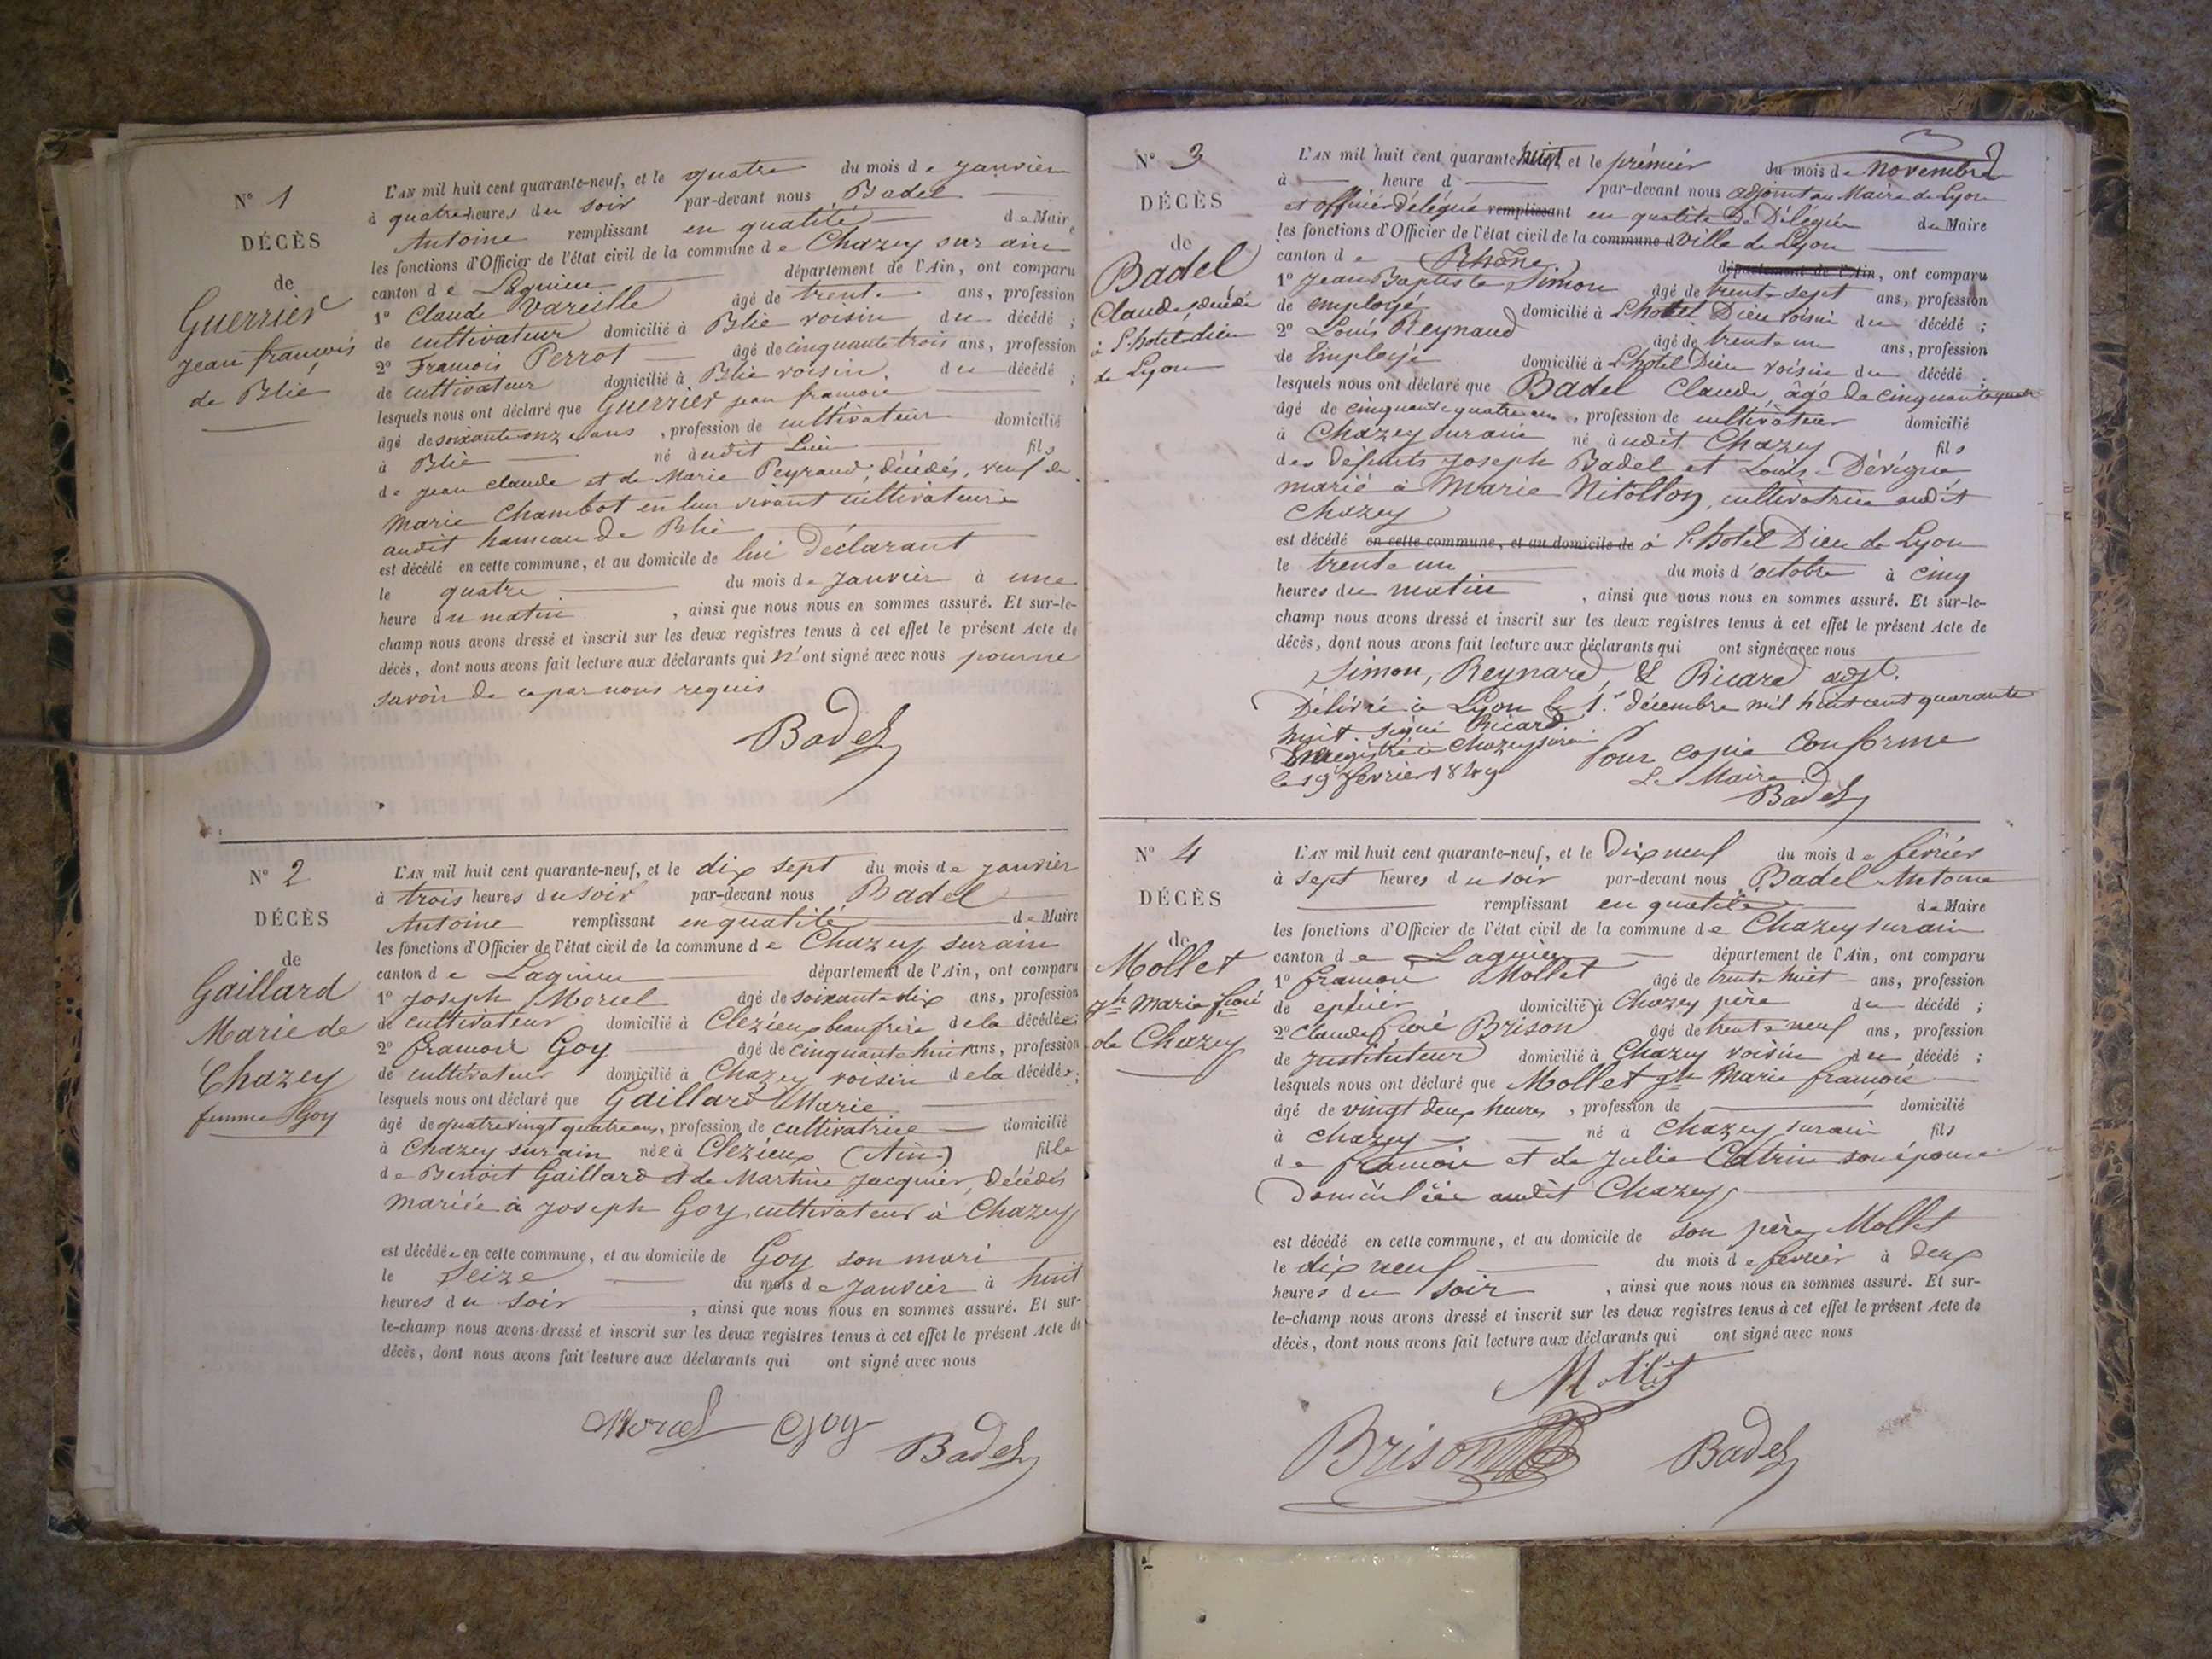 N° 1
DÉCÈS
de
Guerrier
jean françois
de Blie
L'AN mil huit cent quarante-neuf, et le quatre du mois de janvier
à quatre heures du soir par-devant nous Badel
Antoine remplissant en qualité de Maire
les fonctions d'Officier de l'état civil de la commune de Chazey sur ain
canton de Lagnieu département de l'Ain, ont comparu
1° Claude Vareille âgé de trente ans, profession
de cultivateur domicilié à Blie voisin du décédé ;
2° François Perrot âgé de cinquante trois ans, profession
de cultivateur domicilié à Blie voisin du décédé ;
lesquels nous ont déclaré que Guerrier jean françois
âgé de soixante onze ans, profession de cultivateur domicilié
à Blie né audit Lieu fils
de jean claude et de Marie Peyraud, décédés, veuf de
Marie Chambot en leur vivant cultivateurs
audit hameau de Blie
est décédé en cette commune, et au domicile de lui déclarant
le quatre du mois de janvier à une
heure du matin, ainsi que nous nous en sommes assuré. Et sur-le-
champ nous avons dressé et inscrit sur les deux registres tenus à cet effet le présent Acte de
décès, dont nous avons fait lecture aux déclarants qui n'ont signé avec nous pour ne
savoir de ce par nous requis
Badel
N° 2
DÉCÈS
de
Gaillard
Marie de
Chazey
femme Goy
L'AN mil huit cent quarante-neuf, et le dix sept du mois de janvier
à trois heures du soir par-devant nous Badel
Antoine remplissant en qualité de Maire
les fonctions d'Officier de l'état civil de la commune de Chazey sur ain
canton de Lagnieu département de l'Ain, ont comparu
1° joseph Morel âgé de soixante dix ans, profession
de cultivateur domicilié à Clezieux beaufrère de la décédée ;
2° françois Goy âgé de cinquante huit ans, profession
de cultivateur domicilié à Chazey voisin de la décédée ;
lesquels nous ont déclaré que Gaillard Marie
âgé de quatrevingt quatre ans, profession de cultivatrice domicilié
à Chazey sur ain née à Clezieux (Ain) fille
de Benoit Gaillard et de Martine Jacquier, décédés
mariée à joseph Goy cultivateur à Chazey
est décédée en cette commune, et au domicile de Goy son mari
le Seize du mois de janvier à huit
heures du soir, ainsi que nous nous en sommes assuré. Et sur-
le-champ nous avons dressé et inscrit sur les deux registres tenus à cet effet le présent Acte de
décès, dont nous avons fait lecture aux déclarants qui ont signé avec nous
Morel Goy Badel
N° 3
DÉCÈS
de
Badel
Claude, décédé
à l'hotel dieu
de Lyon
L'AN mil huit cent quarante huit, et le prémier du mois de novembre
à heure d par-devant nous adjoint au Maire de Lyon
et officier délégué remplissant en qualité de Délégué du Maire
les fonctions d'Officier de l'état civil de la commune d Ville de Lyon
canton de Rhône département de l'Ain, ont comparu
1° Jean Baptiste Simon âgé de trente sept ans, profession
de employé domicilié à L'hotel Dieu voisin du décédé ;
2° Louis Reynaud âgé de trente un ans, profession
de Employé domicilié à L'hotel Dieu voisin du décédé ;
lesquels nous ont déclaré que Badel Claude, âgé de cinquante quatre
âgé de cinquante quatre ans, profession de cultivateur domicilié
à Chazey sur ain né audit Chazey fils
des défunts joseph Badel et Louise Dévigne
marié à Marie Nitollon, cultivatrice audit
Chazey
est décédé en cette commune, et au domicile de à l'hotel Dieu de Lyon
le trente un du mois d'octobre à cinq
heures du matin, ainsi que nous nous en sommes assuré. Et sur-le-
champ nous avons dressé et inscrit sur les deux registres tenus à cet effet le présent Acte de
décès, dont nous avons fait lecture aux déclarants qui ont signé avec nous
Simon, Reynard, & Ricard adjt.
Délivré à Lyon le 1er décembre mil huit cent quarante
huit. signé Ricard
Enregistré à Chazey sur ain Pour copie Conforme
le 19 février 1849 Le Maire
Badel
N° 4
DÉCÈS
de
Mollet
jh Marie frçois
de Chazey
L'AN mil huit cent quarante-neuf, et le Dix neuf du mois de février
à sept heures du soir par-devant nous Badel Antoine
remplissant en qualité de Maire
les fonctions d'Officier de l'état civil de la commune de Chazey sur ain
canton de Lagnieu département de l'Ain, ont comparu
1° françois Mollet âgé de trente huit ans, profession
de epicier domicilié à Chazey père du décédé ;
2° Claude Brison âgé de trente neuf ans, profession
de Instituteur domicilié à Chazey voisin du décédé ;
lesquels nous ont déclaré que Mollet jh Marie françois
âgé de vingt deux heures, profession de domicilié
à Chazey né à Chazey sur ain fils
de françois et de Julie Catrin son épouse
Domiciliée audit Chazey
est décédé en cette commune, et au domicile de son père, Mollet
le dix neuf du mois de février à deux
heures du soir, ainsi que nous nous en sommes assuré. Et sur-
le-champ nous avons dressé et inscrit sur les deux registres tenus à cet effet le présent Acte de
décès, dont nous avons fait lecture aux déclarants qui ont signé avec nous
Mollet
Brison Badel